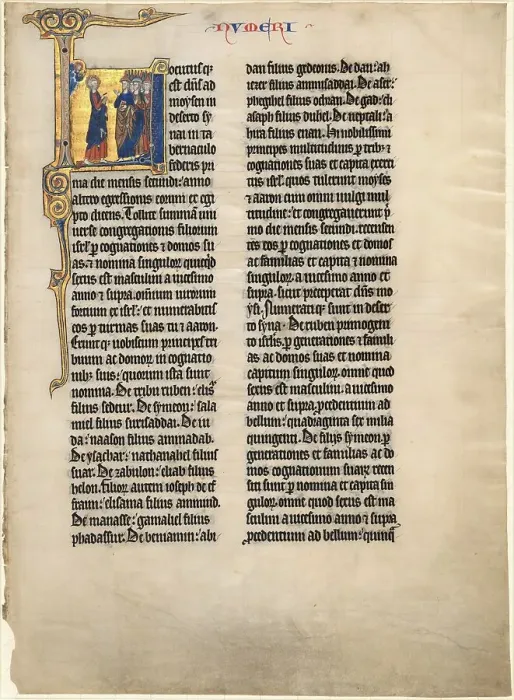 NVMERI
Locutusq
est dns ad
moysen in
deserto sy
nai in ta
bernaculo
federis pri
ma die mensis secundi: anno
altero egressionis eorum ex egi
pto dicens. Tollite summam uni
uerse congregationis filiorum
isrl p cognationes ⁊ domos su
as. ⁊ nomina singulor quicqd
sexus est masculini a uicesimo
anno ⁊ supra. omium uirorum
fortium ex isrl. et numerabitis
eos p turmas suas tu ⁊ aaron.
Erunt q uobiscum principes tri
buum ac domor in cognatio
nib suis: quorum ista sunt
nomina. De tribu ruben: elis
filius sedeur. De symeon: sala
miel filius surisaddai. De iu
da: naason filius amminadab.
De ysachar: nathanahel filius
suar. De zabulon: eliab filius
helon. Filior autem ioseph de ef
fraim: elisama filius ammiud.
De manasse: gamaliel filius
phadassur. De beniamin: abi
dan filius gedeonis. De dan: ah
iezer filius ammisaddai. De aser:
phegihel filius ochran. De gad: eli
asaph filius duhel. De neptali: a
hira filius enan. Hi nobilissimi
principes multitudinis p trib ⁊
cognationes suas et capita exerci
tus isrl. quos tulerunt moyses
⁊ aaron cum omni uulgi mul
titudine: et congregauerunt p
mo die mensis secundi. recensen
tes eos p cognationes et domos
ac familias et capita ⁊ nomina
singulor. a uicesimo anno et
supra. sicut preceperat dns mo
ysi. Numerati q sunt in deser
to syna. De ruben primogeni
to isrlis. p generationes ⁊ famili
as ac domos suas et nomina
capitum singulor. omne quod
sexus est masculini. a uicesimo
anno et supra. pcedentium ad
bellum: quadraginta sex milia
quingenti. De filiis symeon. p
generationes et familias ac do
mos cognationum suarum recen
siti sunt. p nomina et capita sin
gulor. omne quod sexus est ma
sculini a uicesimo anno ⁊ supra
pcedentium ad bellum: quinq